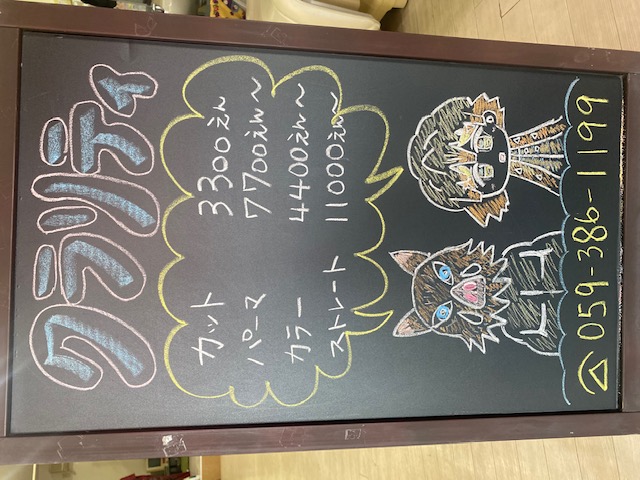 クラリティ
カット 3300えん
パーマ 7700えん〜
カラー 4400えん〜
ストレート 11000えん〜
059-386-1199